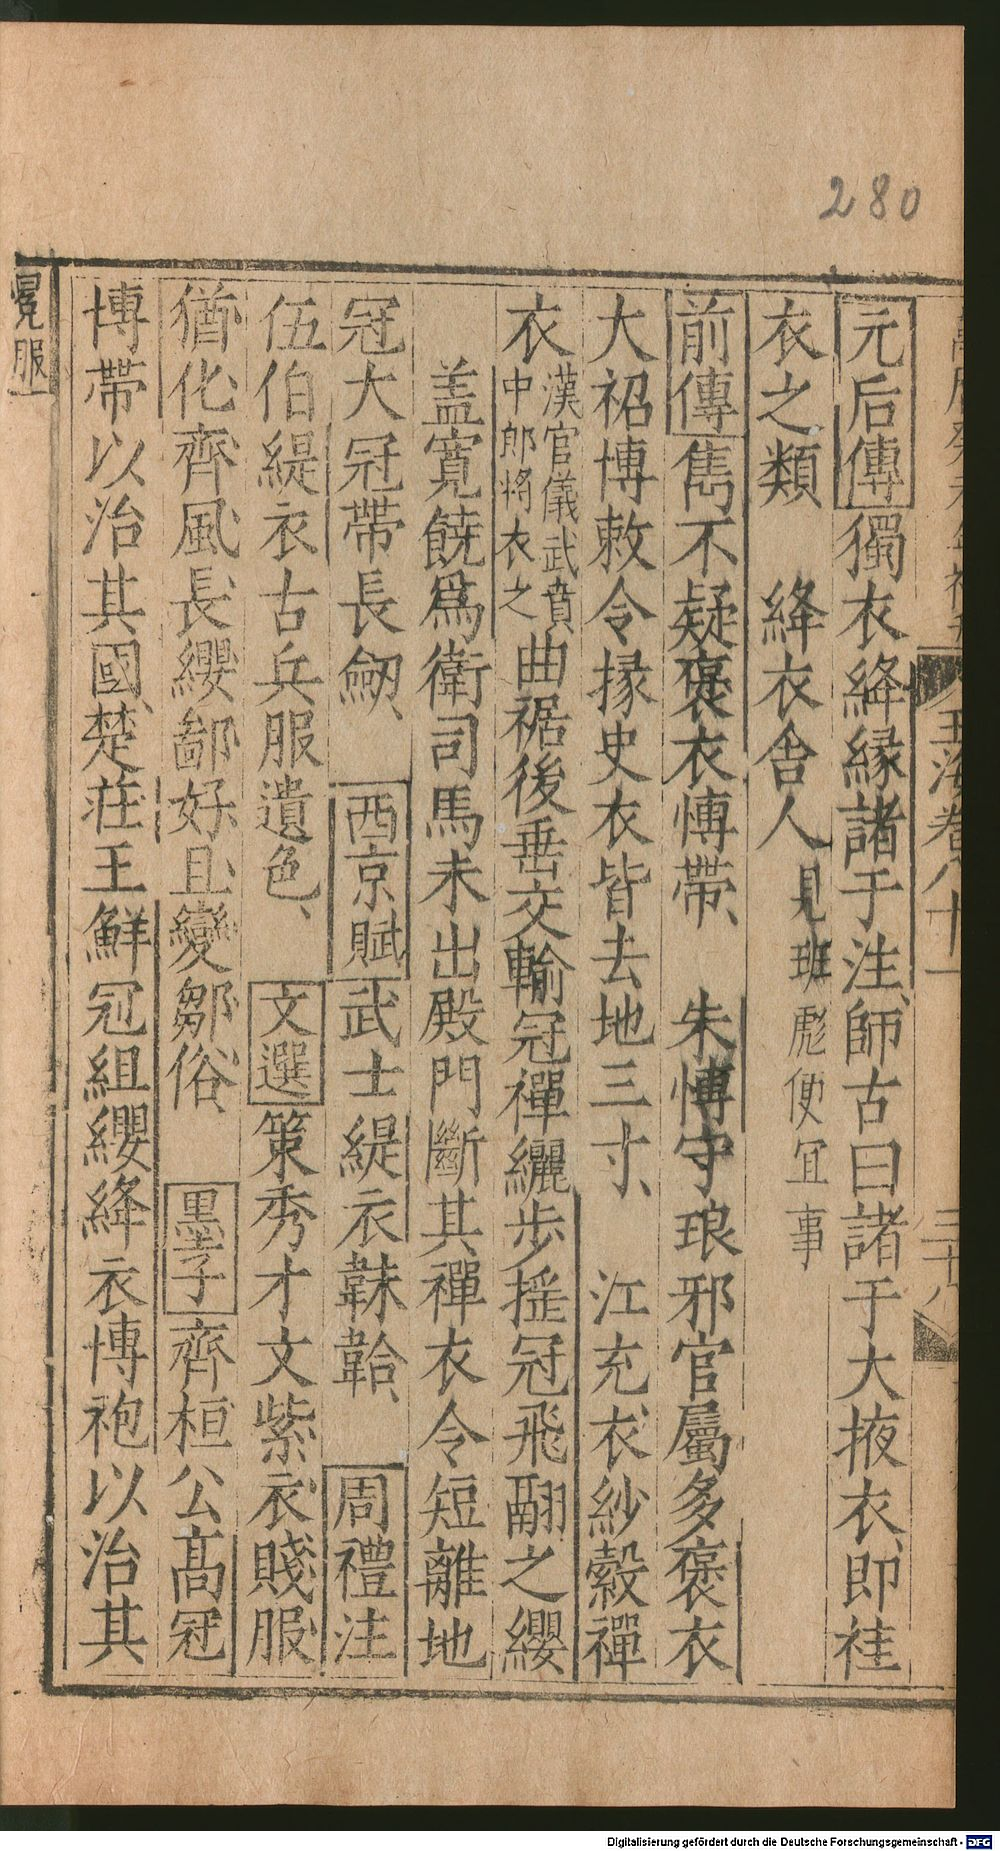 280
玉海卷八十一
三十八
元后傳獨衣絳緣諸于注師古曰諸于大掖衣、即袿
衣之類　絳衣舍人見班彪便宜事
前傳雋不疑褒衣博帶、　朱博守琅邪官屬多褒衣
大袑博敕令掾史衣皆去地三寸、　江充衣紗縠襌
衣漢官儀武賁中郎將衣之曲裾後垂交輸冠襌纚步揺冠飛翮之纓
蓋寛饒爲衛司馬未出殿門斷其襌衣令短離地
冠大冠帶長劒、　西京賦武士緹衣韎韐、　周禮注
伍伯緹衣古兵服遺色、　文選策秀才文紫衣賤服
猶化齊風長纓鄙好且變鄒俗、　墨子齊桓公髙冠
博帶以治其國、楚莊王鮮冠組纓絳衣博袍以治其
冕服一
Digitalisierung gefördert durch die Deutsche Forschungsgemeinschaft - DFG